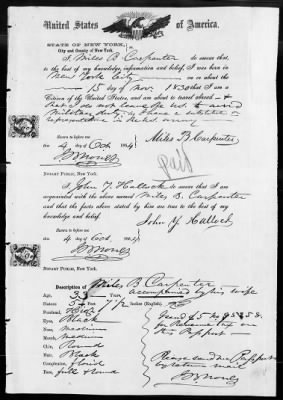 United States of America.
STATE OF NEW YORK,
City and County of New York.
I, Miles B Carpenter do swear that,
to the best of my knowledge, information and belief, I was born in
New York City on or about the
15 day of Nov. 1830 that I am a
Citizen of the United States, and am about to travel abroad - &
that I do not leave the U.S. to avoid
military duty, & I have a substitute or
representative in the U.S. army
Sworn to before me
this 4 day of Oct 1864
Miles B Carpenter
NOTARY PUBLIC, New York.
paid
I, John Y. Hallock do swear that I am
acquainted with the above named Miles B. Carpenter
and that the facts above stated by him are true to the best of my
knowledge and belief.
John Y Hallock
Sworn to before me
this 4 day of Oct 1864
NOTARY PUBLIC, New York.
Description of Miles B Carpenter
accompanied by his wife
Age, 33 Years,
Stature, 5 Feet 7 1/2 Inches (English),
Forehead, High
Eyes, Black
Nose, medium
Mouth, medium
Chin, Round
Hair, Black
Complexion, florid
Face, full & round
I send $5
for Revenue tax on
this Passport
Please send in Passport
by return mail